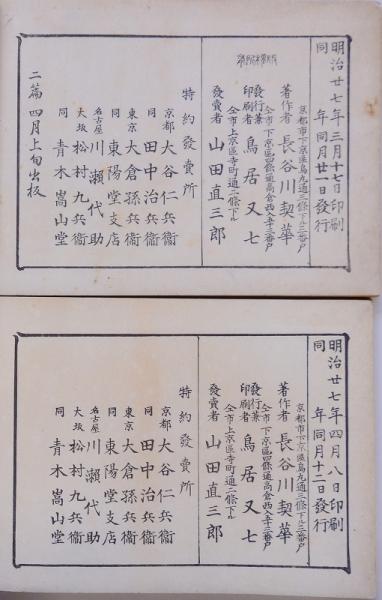 明治廿七年三月十七日印刷
同　年同月廿一日發行
京都市下京區烏丸通三條下ル三番戸
著作者　長谷川契華
仝市下京區四條通高倉西入三番戸
發行兼印刷者　鳥居又七
仝市上京區寺町通二條下ル
發賣者　山田直三郎
特約發賣所
京都　大谷仁兵衞
同　田中治兵衞
東京　大倉孫兵衞
同　東陽堂支店
名古屋　川瀬代助
大坂　松村九兵衞
同　青木嵩山堂
二篇四月上旬出板
明治廿七年四月八日印刷
同　年同月十二日發行
京都市下京區烏丸通三條下ル三番戸
著作者　長谷川契華
仝市下京區四條通高倉西入三番戸
發行兼印刷者　鳥居又七
仝市上京區寺町通二條下ル
發賣者　山田直三郎
特約發賣所
京都　大谷仁兵衞
同　田中治兵衞
東京　大倉孫兵衞
同　東陽堂支店
名古屋　川瀬代助
大坂　松村九兵衞
同　青木嵩山堂